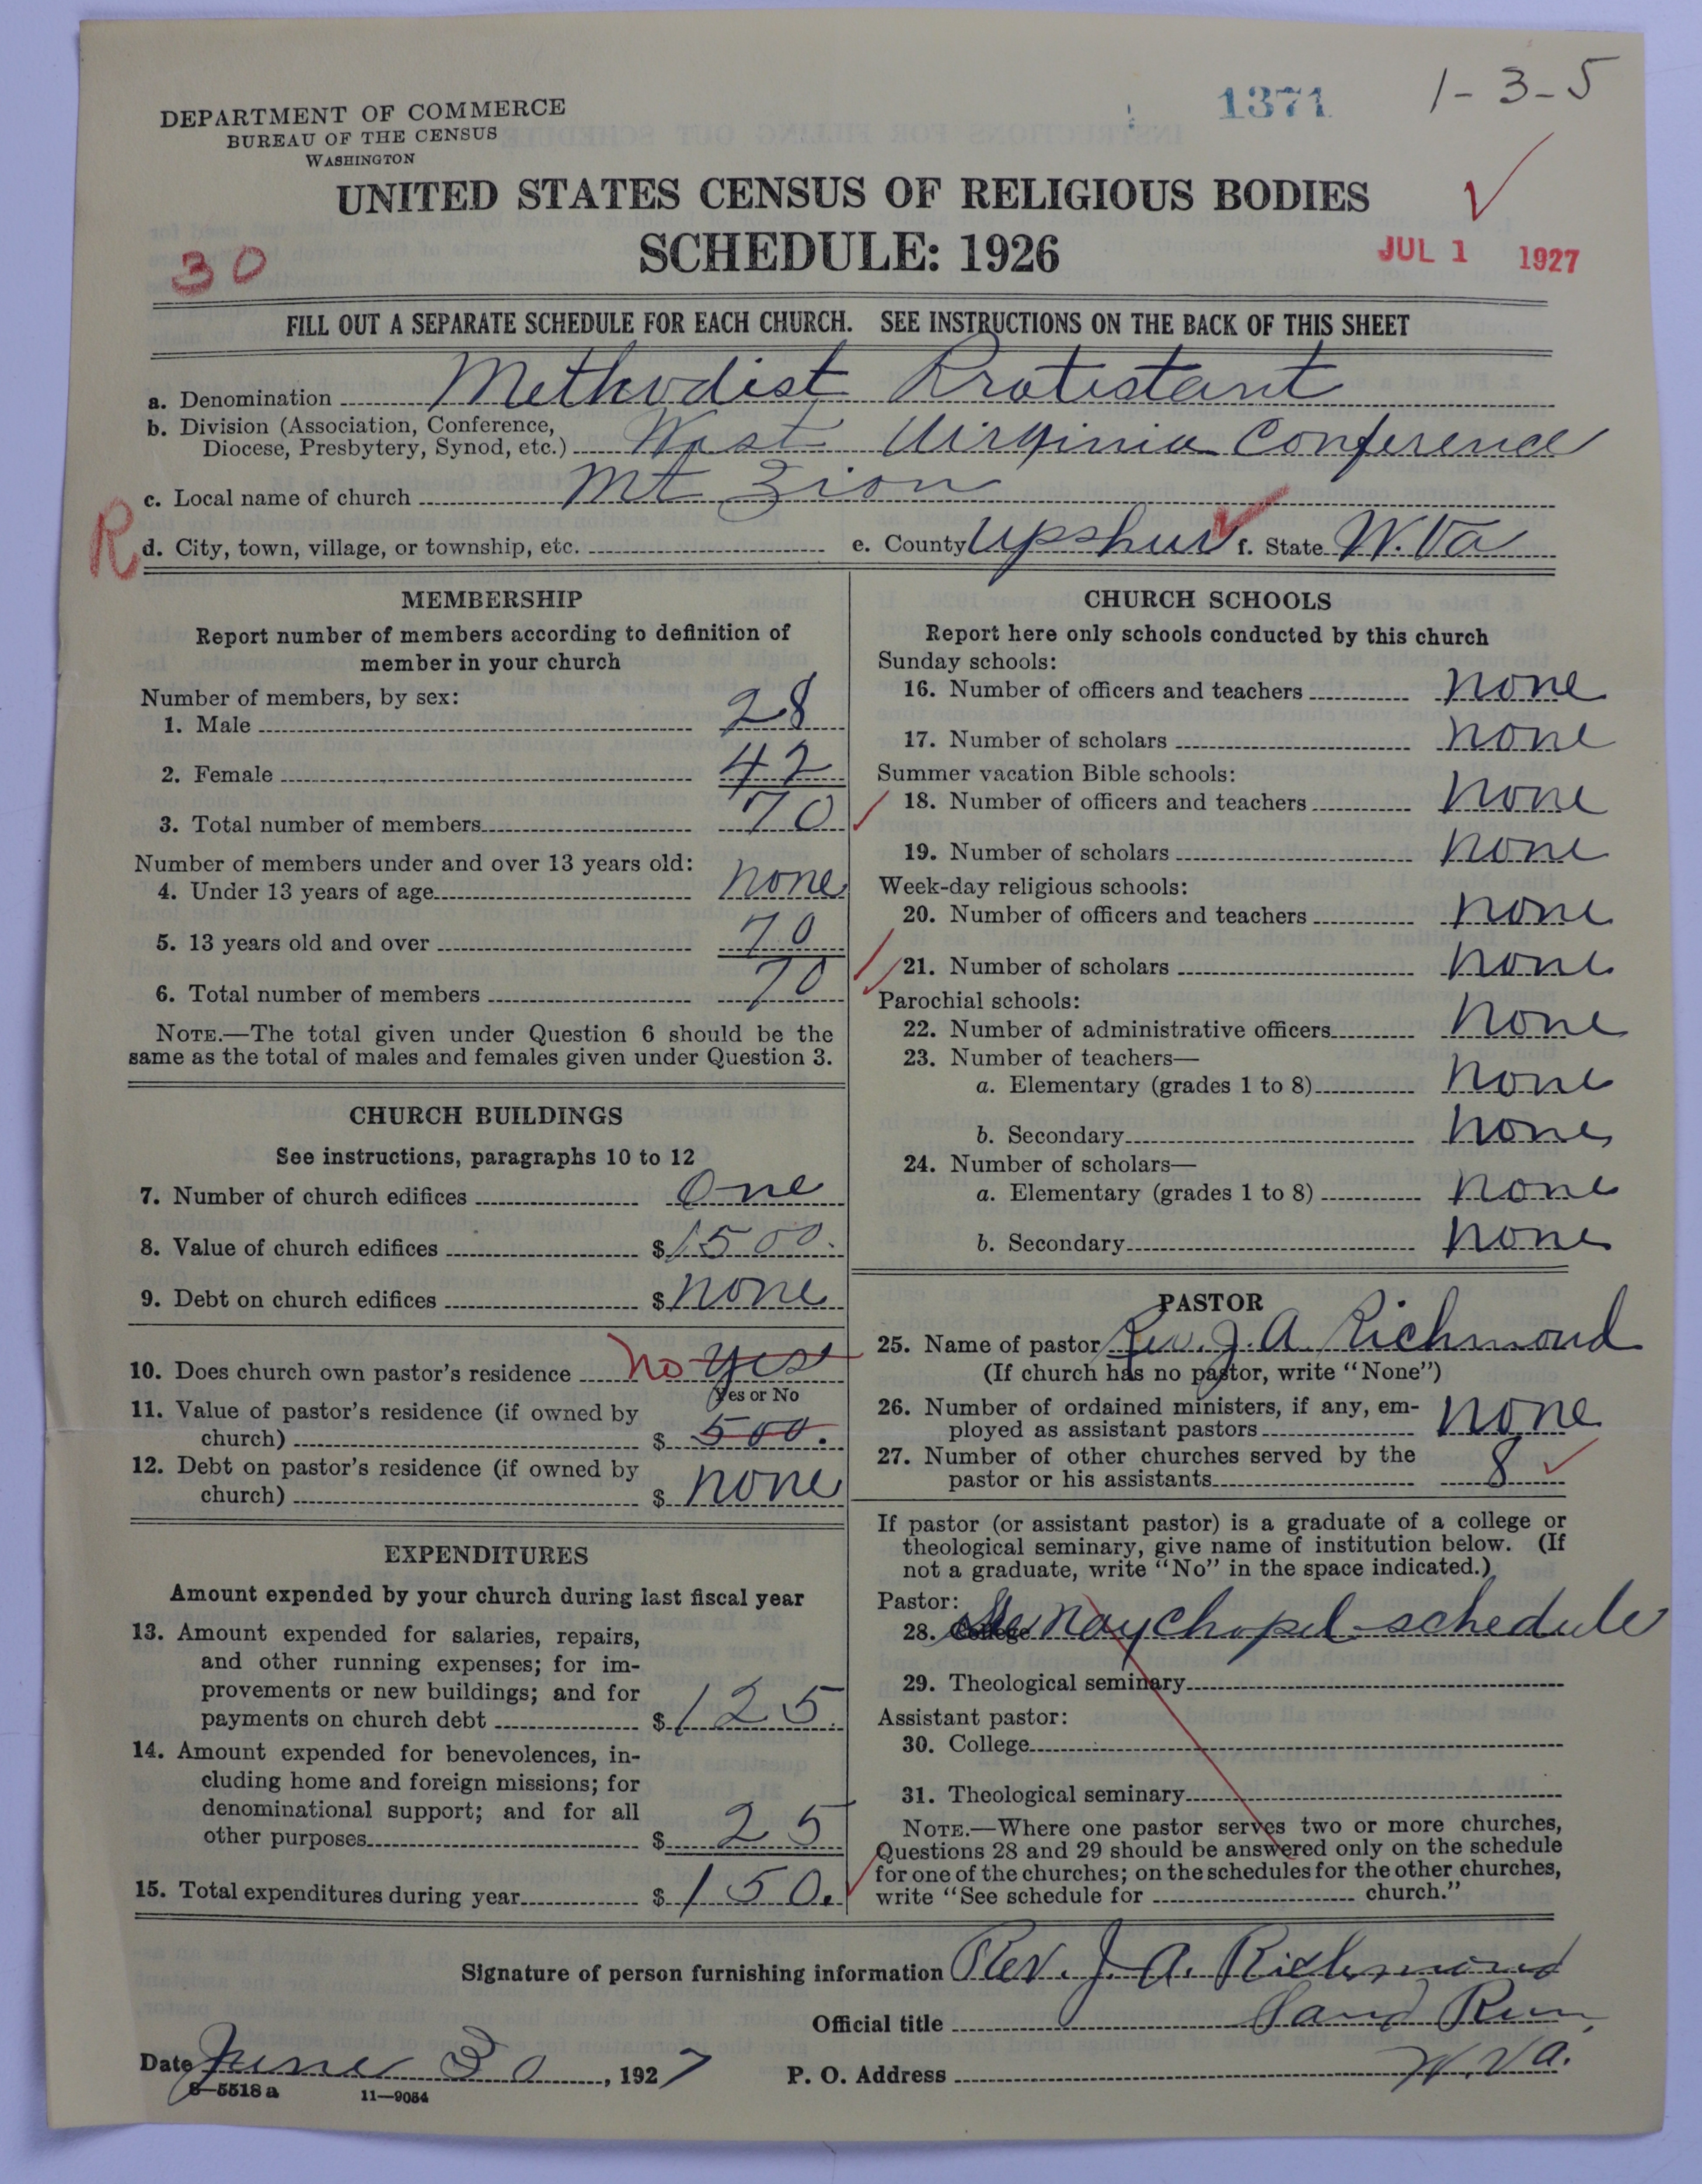 1371
1-3-5
DEPARTMENT OF COMMERCE
BUREAU OF THE CENSUS
WASHINGTON
UNITED STATES CENSUS OF RELIGIOUS BODIES
SCHEDULE: 1926
30
JUL 1 1927
FILL OUT A SEPARATE SCHEDULE FOR EACH CHURCH. SEE INSTRUCTIONS ON THE BACK OF THIS SHEET
a. Denomination Methodist Protestant
b. Division (Association, Conference,
Diocese, Presbytery, Synod, etc.) West Virginia Conference
c. Local name of church Mt Zion
R
d. City, town, village, or township, etc. e. County Upshur f. State W. Va
MEMBERSHIP
Report number of members according to definition of
member in your church
Number of members, by sex:
1. Male 28
2. Female 42
3. Total number of members 70
Number of members under and over 13 years old:
4. Under 13 years of age none
5. 13 years old and over 70
6. Total number of members 70
NOTE.—The total given under Question 6 should be the
same as the total of males and females given under Question 3.
CHURCH BUILDINGS
See instructions, paragraphs 10 to 12
7. Number of church edifices One
8. Value of church edifices $ 1500.
9. Debt on church edifices $ none
10. Does church own pastor's residence no yes
Yes or No
11. Value of pastor's residence (if owned by
church) $ 500.
12. Debt on pastor's residence (if owned by
church) $ none
EXPENDITURES
Amount expended by your church during last fiscal year
13. Amount expended for salaries, repairs,
and other running expenses; for im-
provements or new buildings; and for
payments on church debt $ 125.
14. Amount expended for benevolences, in-
cluding home and foreign missions; for
denominational support; and for all
other purposes $ 25
15. Total expenditures during year $ 150.
CHURCH SCHOOLS
Report here only schools conducted by this church
Sunday schools:
16. Number of officers and teachers none
17. Number of scholars none
Summer vacation Bible schools:
18. Number of officers and teachers none
19. Number of scholars none
Week-day religious schools:
20. Number of officers and teachers none
21. Number of scholars none
Parochial schools:
22. Number of administrative officers none
23. Number of teachers—
a. Elementary (grades 1 to 8) none
b. Secondary none
24. Number of scholars—
a. Elementary (grades 1 to 8) none
b. Secondary none
PASTOR
25. Name of pastor Rev. J. A. Richmond
(If church has no pastor, write "None")
26. Number of ordained ministers, if any, em-
ployed as assistant pastors none
27. Number of other churches served by the
pastor or his assistants 8
If pastor (or assistant pastor) is a graduate of a college or
theological seminary, give name of institution below. (If
not a graduate, write "No" in the space indicated.)
Pastor:
28. College chapel schedule
29. Theological seminary
Assistant pastor:
30. College
31. Theological seminary
NOTE.—Where one pastor serves two or more churches,
Questions 28 and 29 should be answered only on the schedule
for one of the churches; on the schedules for the other churches,
write "See schedule for church."
Signature of person furnishing information Rev. J. A. Richmond
Official title Sand Run,
Date June 30, 1927 P. O. Address W. Va.
8—5518 a 11—9054